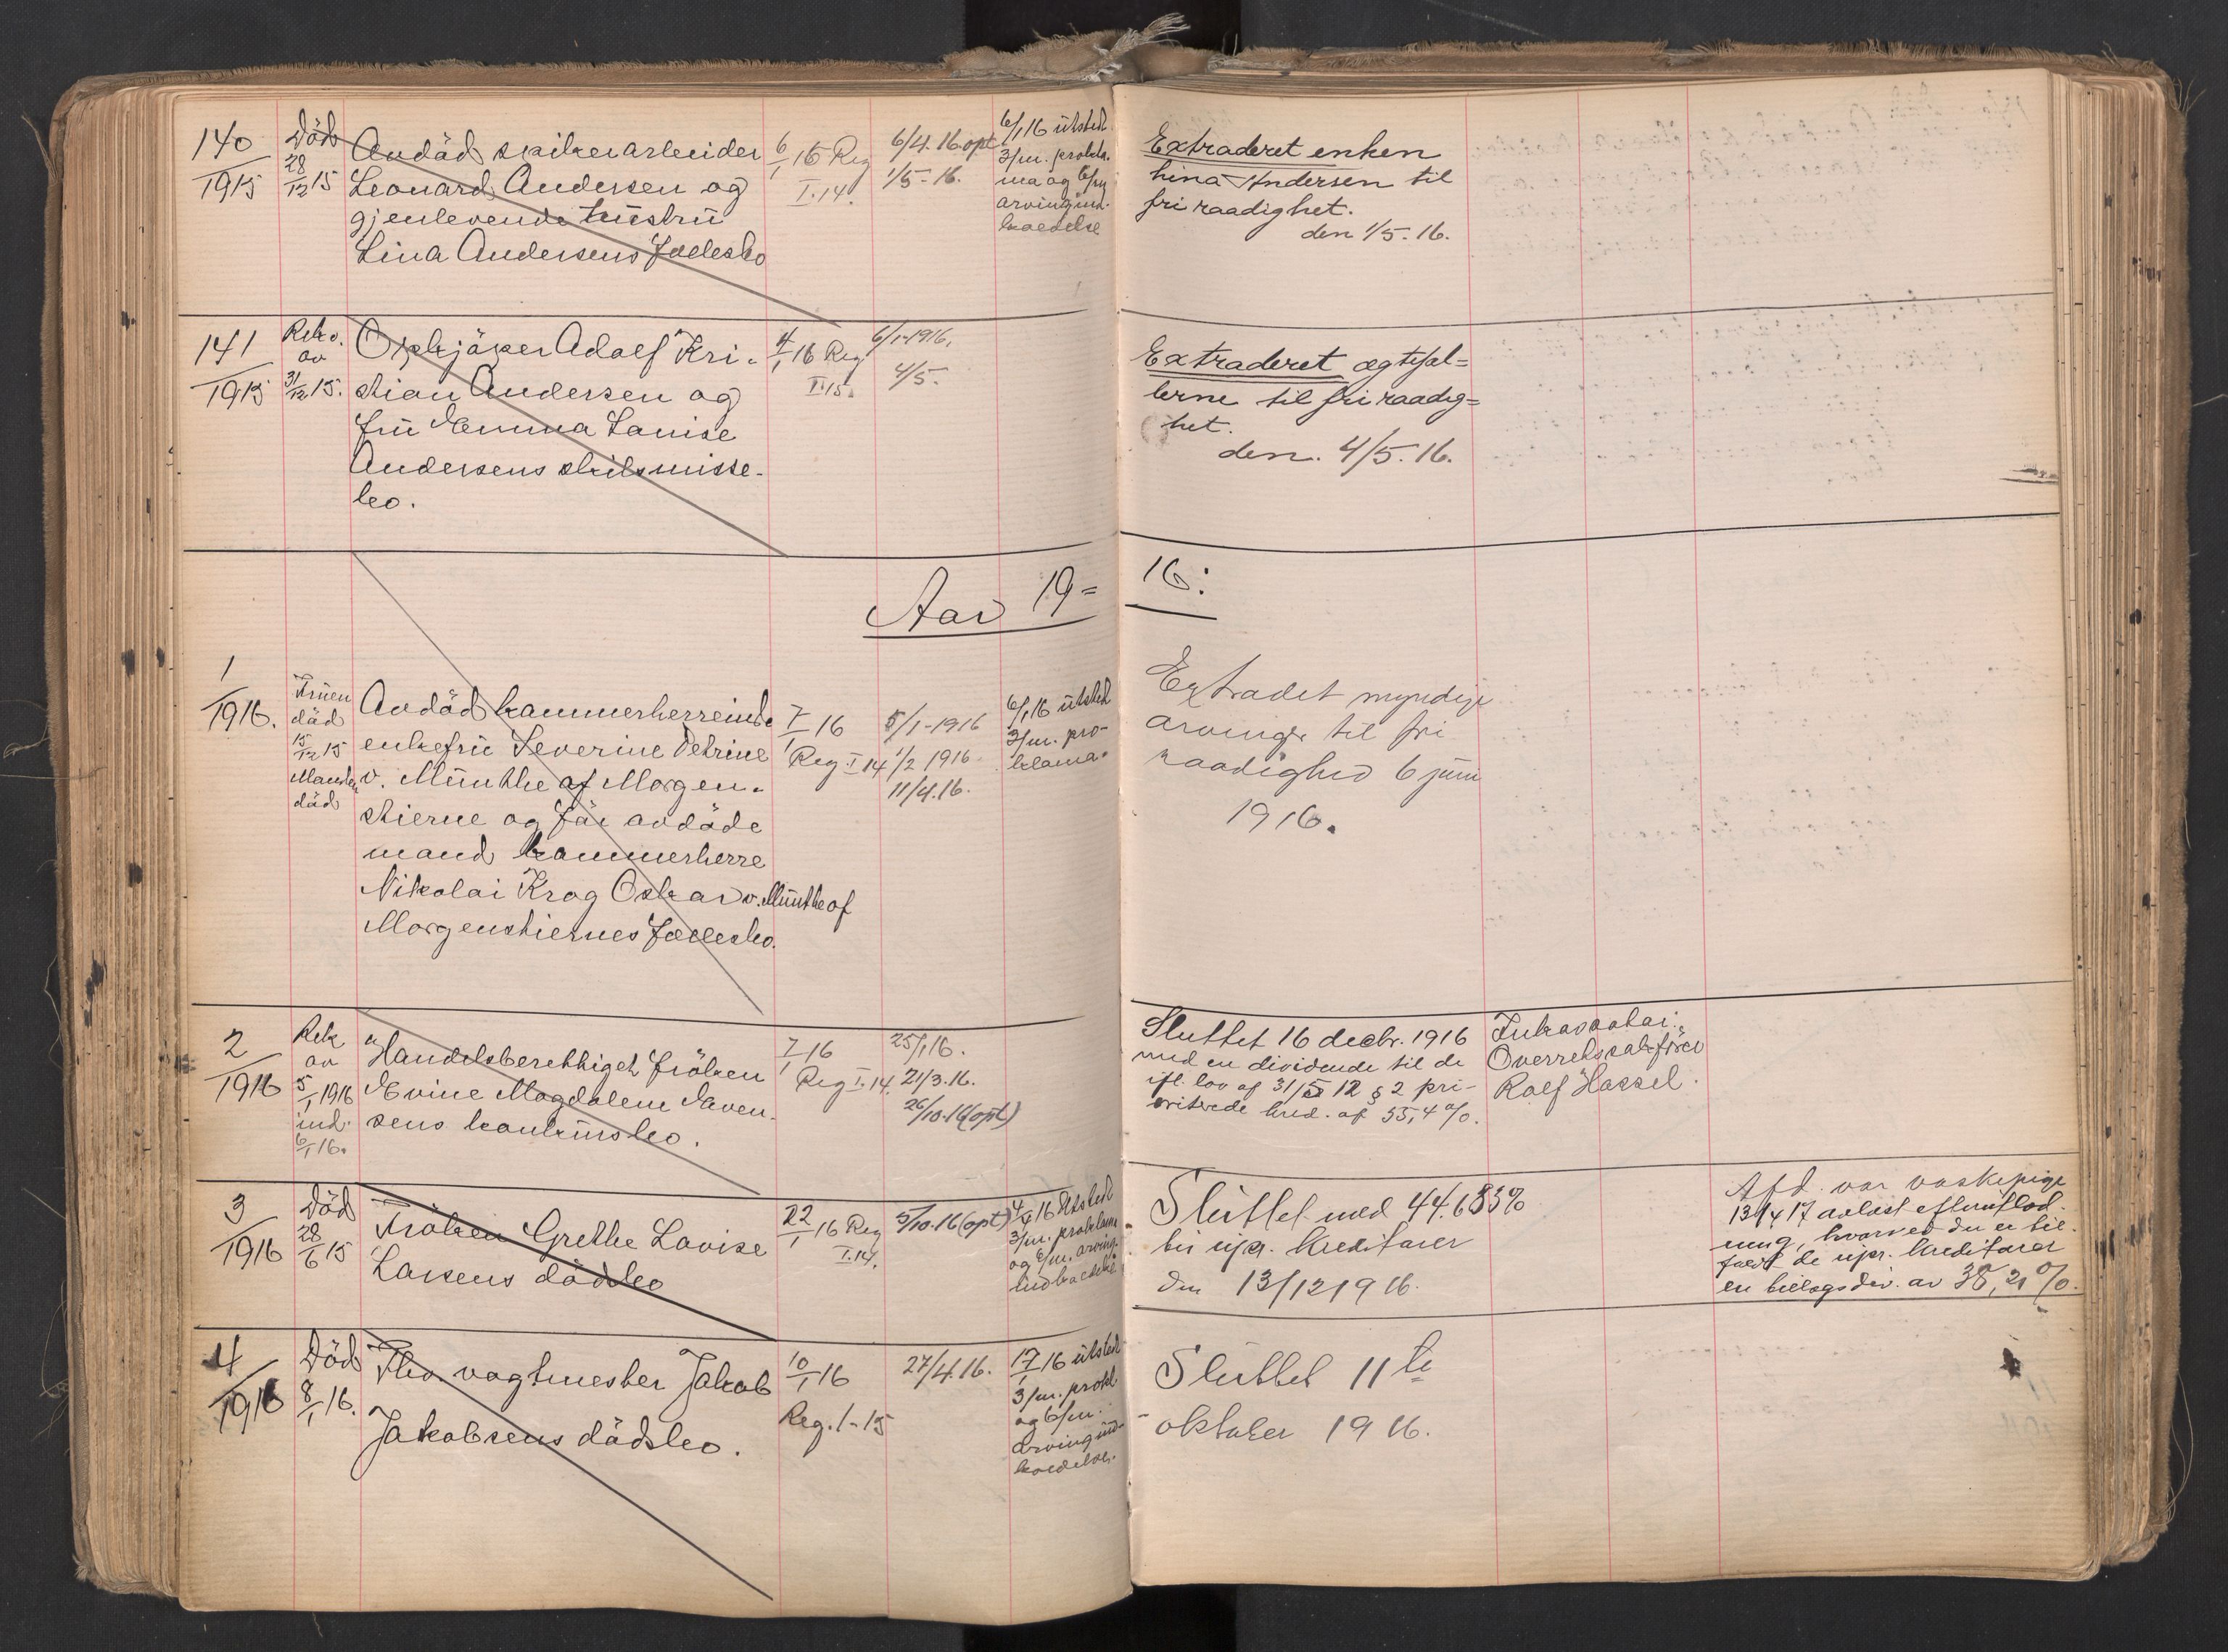 140
1915
Död
28/12 15
Avdöd spikerarbeider
Leonard Andersen og
gjenlevende hustru
Lina Andersens Fællesbo
6/1 16 Reg
I. 14.
6/4. 16. opt
1/5 - 16.
6/1 16 utstedt
3/m. prokla-
ma og 6/m
arvingind-
kaldelse
Extraderet enken
Lina Andersen til
fri raadighet.
den 1/5. 16.
141
1915
Rekv.
av
31/12 15.
Opkjöper Adolf Kri-
stian Andersen og
fru Emma Lovise
Andersens skilsmisse-
bo.
4/1 16 Reg
I. 15.
6/1-1916.
4/5.
Extraderet ægtefæl=
lerne til fri raadig=
het.
den. 4/5. 16.
Aar 19=
16:
1
1916.
Fruen
död
15/12 15
Manden
död
Avdöd kammerherreinde
enkefru Severine Petrine
v. Munthe af Morgen-
stierne og för avdöde
mand kammerherre
Nikolai Krog Oskar v. Munthe af
Morgenstiernes Fællesbo.
7/1 16
Reg I 14
5/1-1916
1/2 1916.
11/4. 16.
6/1 16 utstedt
3/m. pro-
klama.
Extradet myndige
arvinger til fri
raadighed 6 juni
1916.
2
1916
Rek
av
5/1 1916
ind.
6/1 16.
Handelsberettiget fröken
Evine Magdalene
sens konkursbo.
7/1 16
Reg I. 14.
25/1 16.
21/3. 16.
26/10. 16 (opt)
Sluttet 16 decbr. 1916
med en dividende til de
ifl. lov af 31/5 12 § 2 pri-
oriterede kred. af 55,4 %.
Overretssakförer
Rolf Hassel.
3
1916
Död
28/6 15
Fröken Grethe Lovise
Larsens dödsbo
22/1 16 Reg
I. 14.
5/10. 16 (opt)
4/4 16 Utstedt
3/m. proklama
og 6/m. arving-
indkaldelse
Sluttet med 44.685%
til upr. Kreditorer
den 13/12 1916.
Afd. var vaskepige
13/4 17 avlæst efterutlod-
ning, hvorved der er til-
faldt de upr. kreditorer
en tillægsdiv. av 38,21 %.
4
1916
Död
8/1 16.
Fhv. vagtmester Jakob
Jakobsens dödsbo.
10/1 16
Reg. 1-15
27/4. 16.
17/1 16 utstedt
3/m. prokl.
og 6/m.
arvingind-
kaldelse.
Sluttet 11te
oktober 1916.